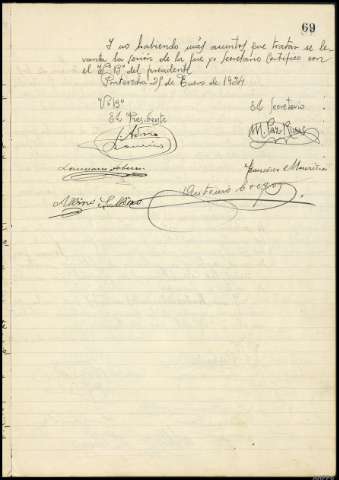 69
Y no habiendo más asuntos que tratar se le
vanta la sesión de la que yo secretario certifico con
el "Vº Bº" del presidente
Pontevedra 28 de Enero de 1934
Vº Bº
El Presidente
El Secretario
M. Paz
Francisco
Antonio
Albino